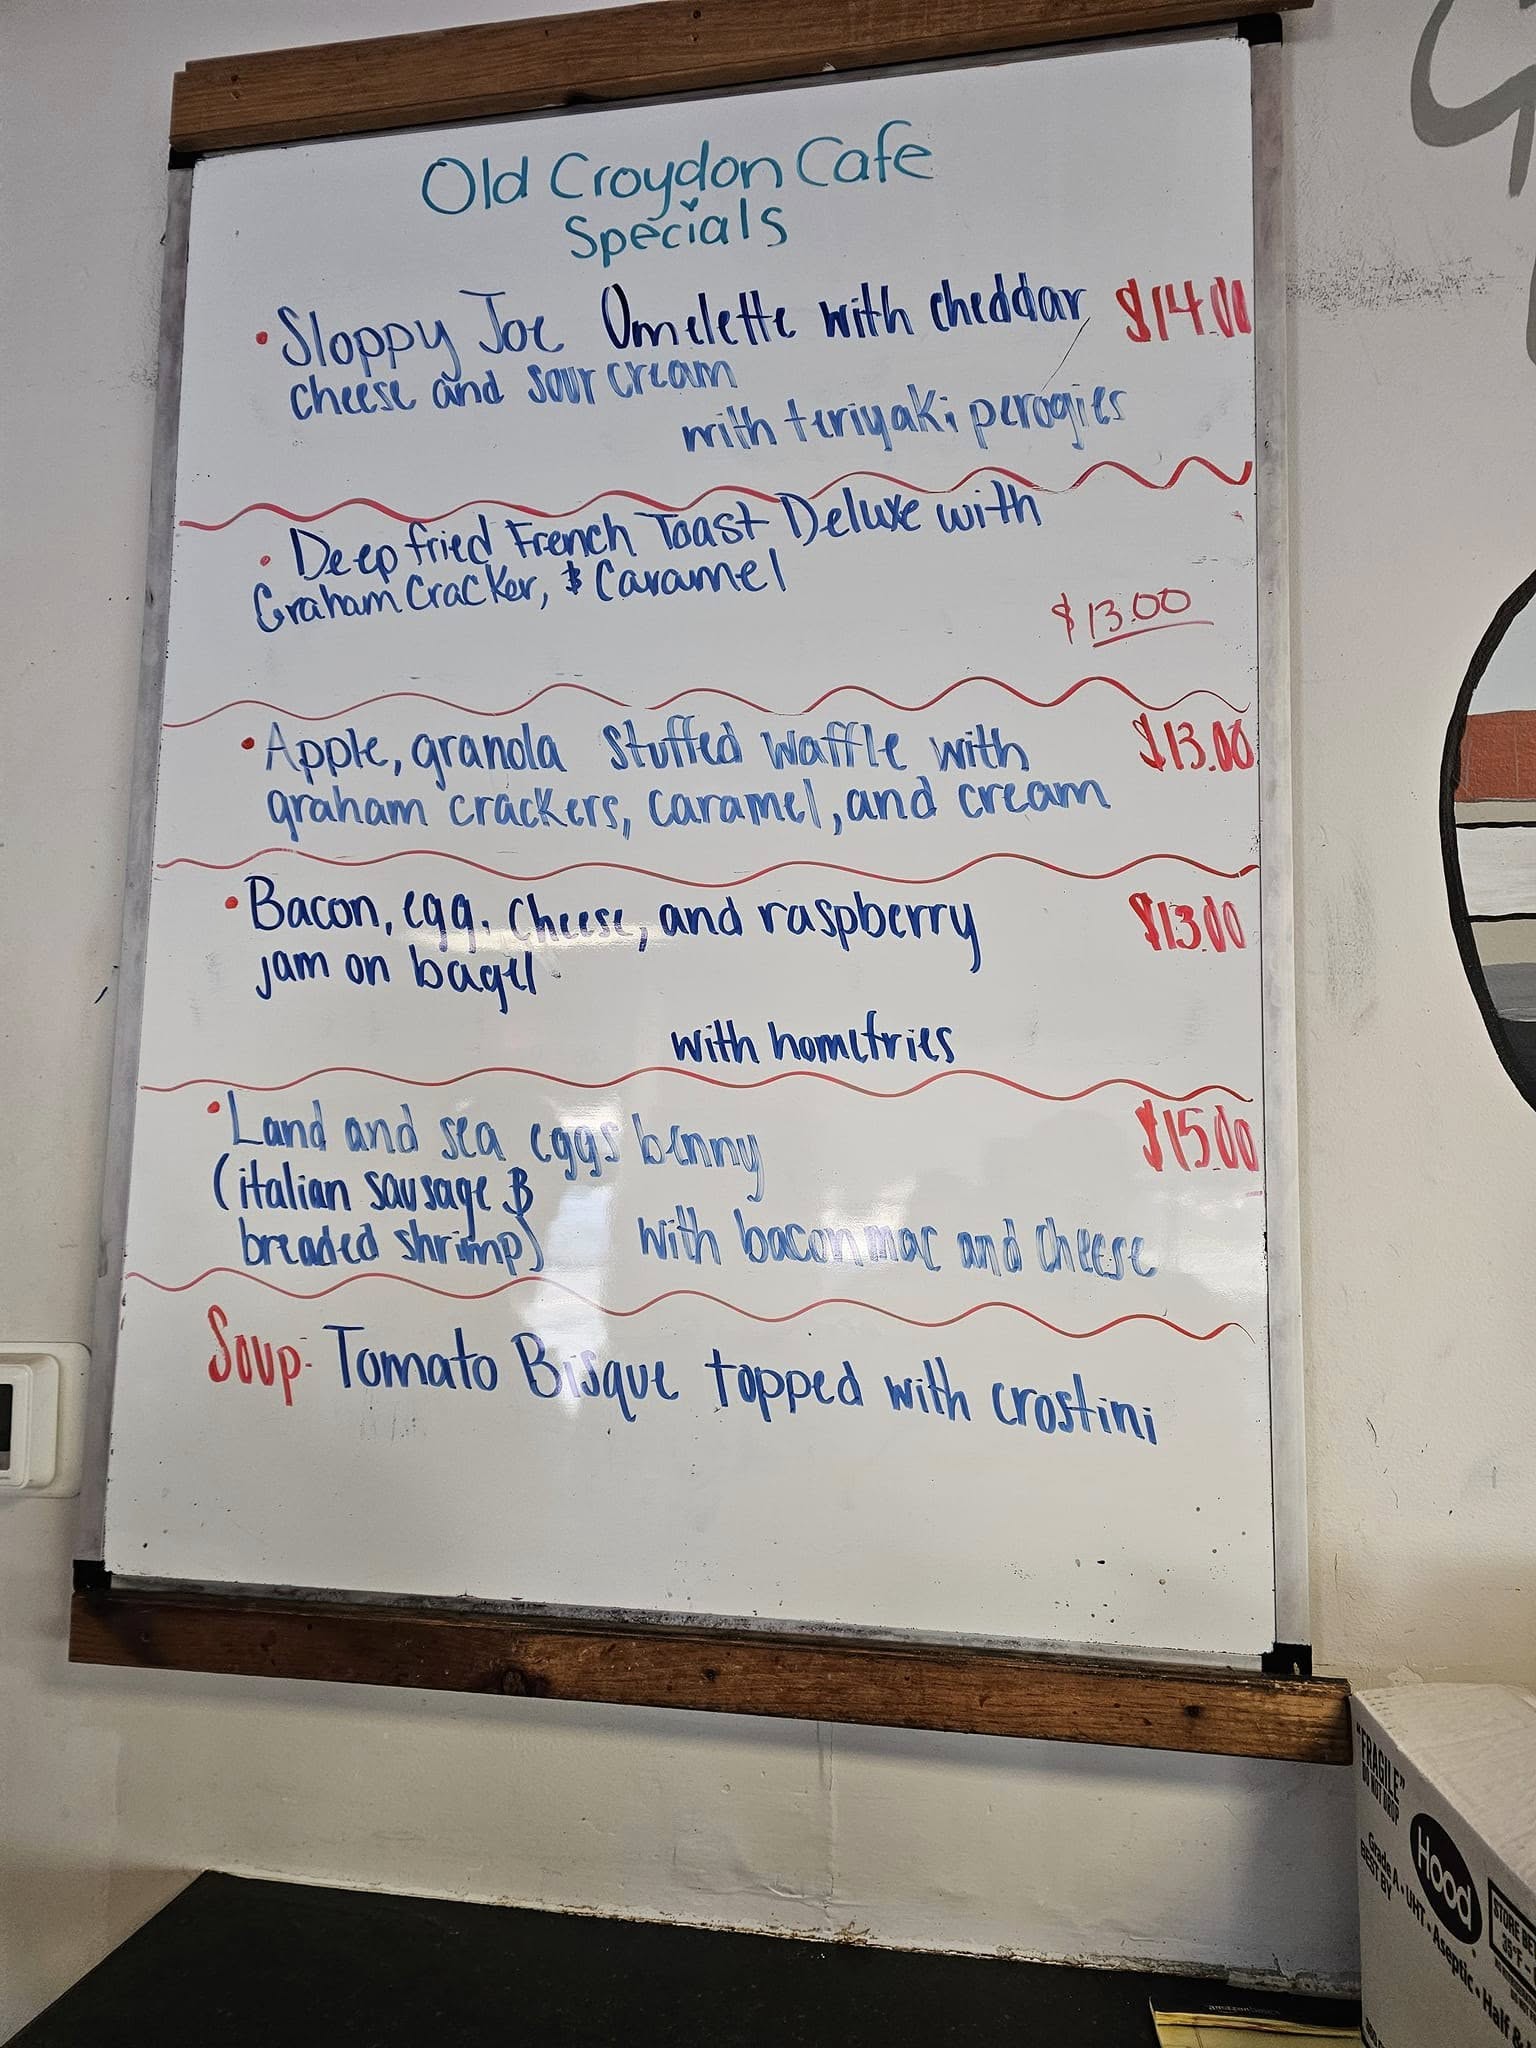 Old Croydon Cafe
Specials
• Sloppy Joe Omelette with cheddar $14.00
cheese and sour cream
with teriyaki perogies
• Deep fried French Toast Deluxe with
Graham Cracker, & Caramel
$13.00
• Apple, granola stuffed waffle with $13.00
graham crackers, caramel, and cream
• Bacon, egg, cheese, and raspberry $13.00
jam on bagel
with homefries
• Land and sea eggs benny $15.00
(italian sausage &
breaded shrimp) with bacon mac and cheese
Soup- Tomato Bisque topped with crostini
"FRAGILE"
DO NOT DROP
Hood
Grade A • UHT • Aseptic • Half &
BEST BY
STORE
35°F -